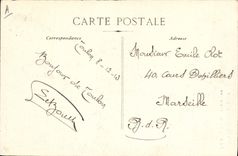 A
CARTE POSTALE
Correspondance
Toulon 8-12-18
Bonjour de Toulon
Monsieur Emile Olot
40, Cours
Marseille
B.d.R.